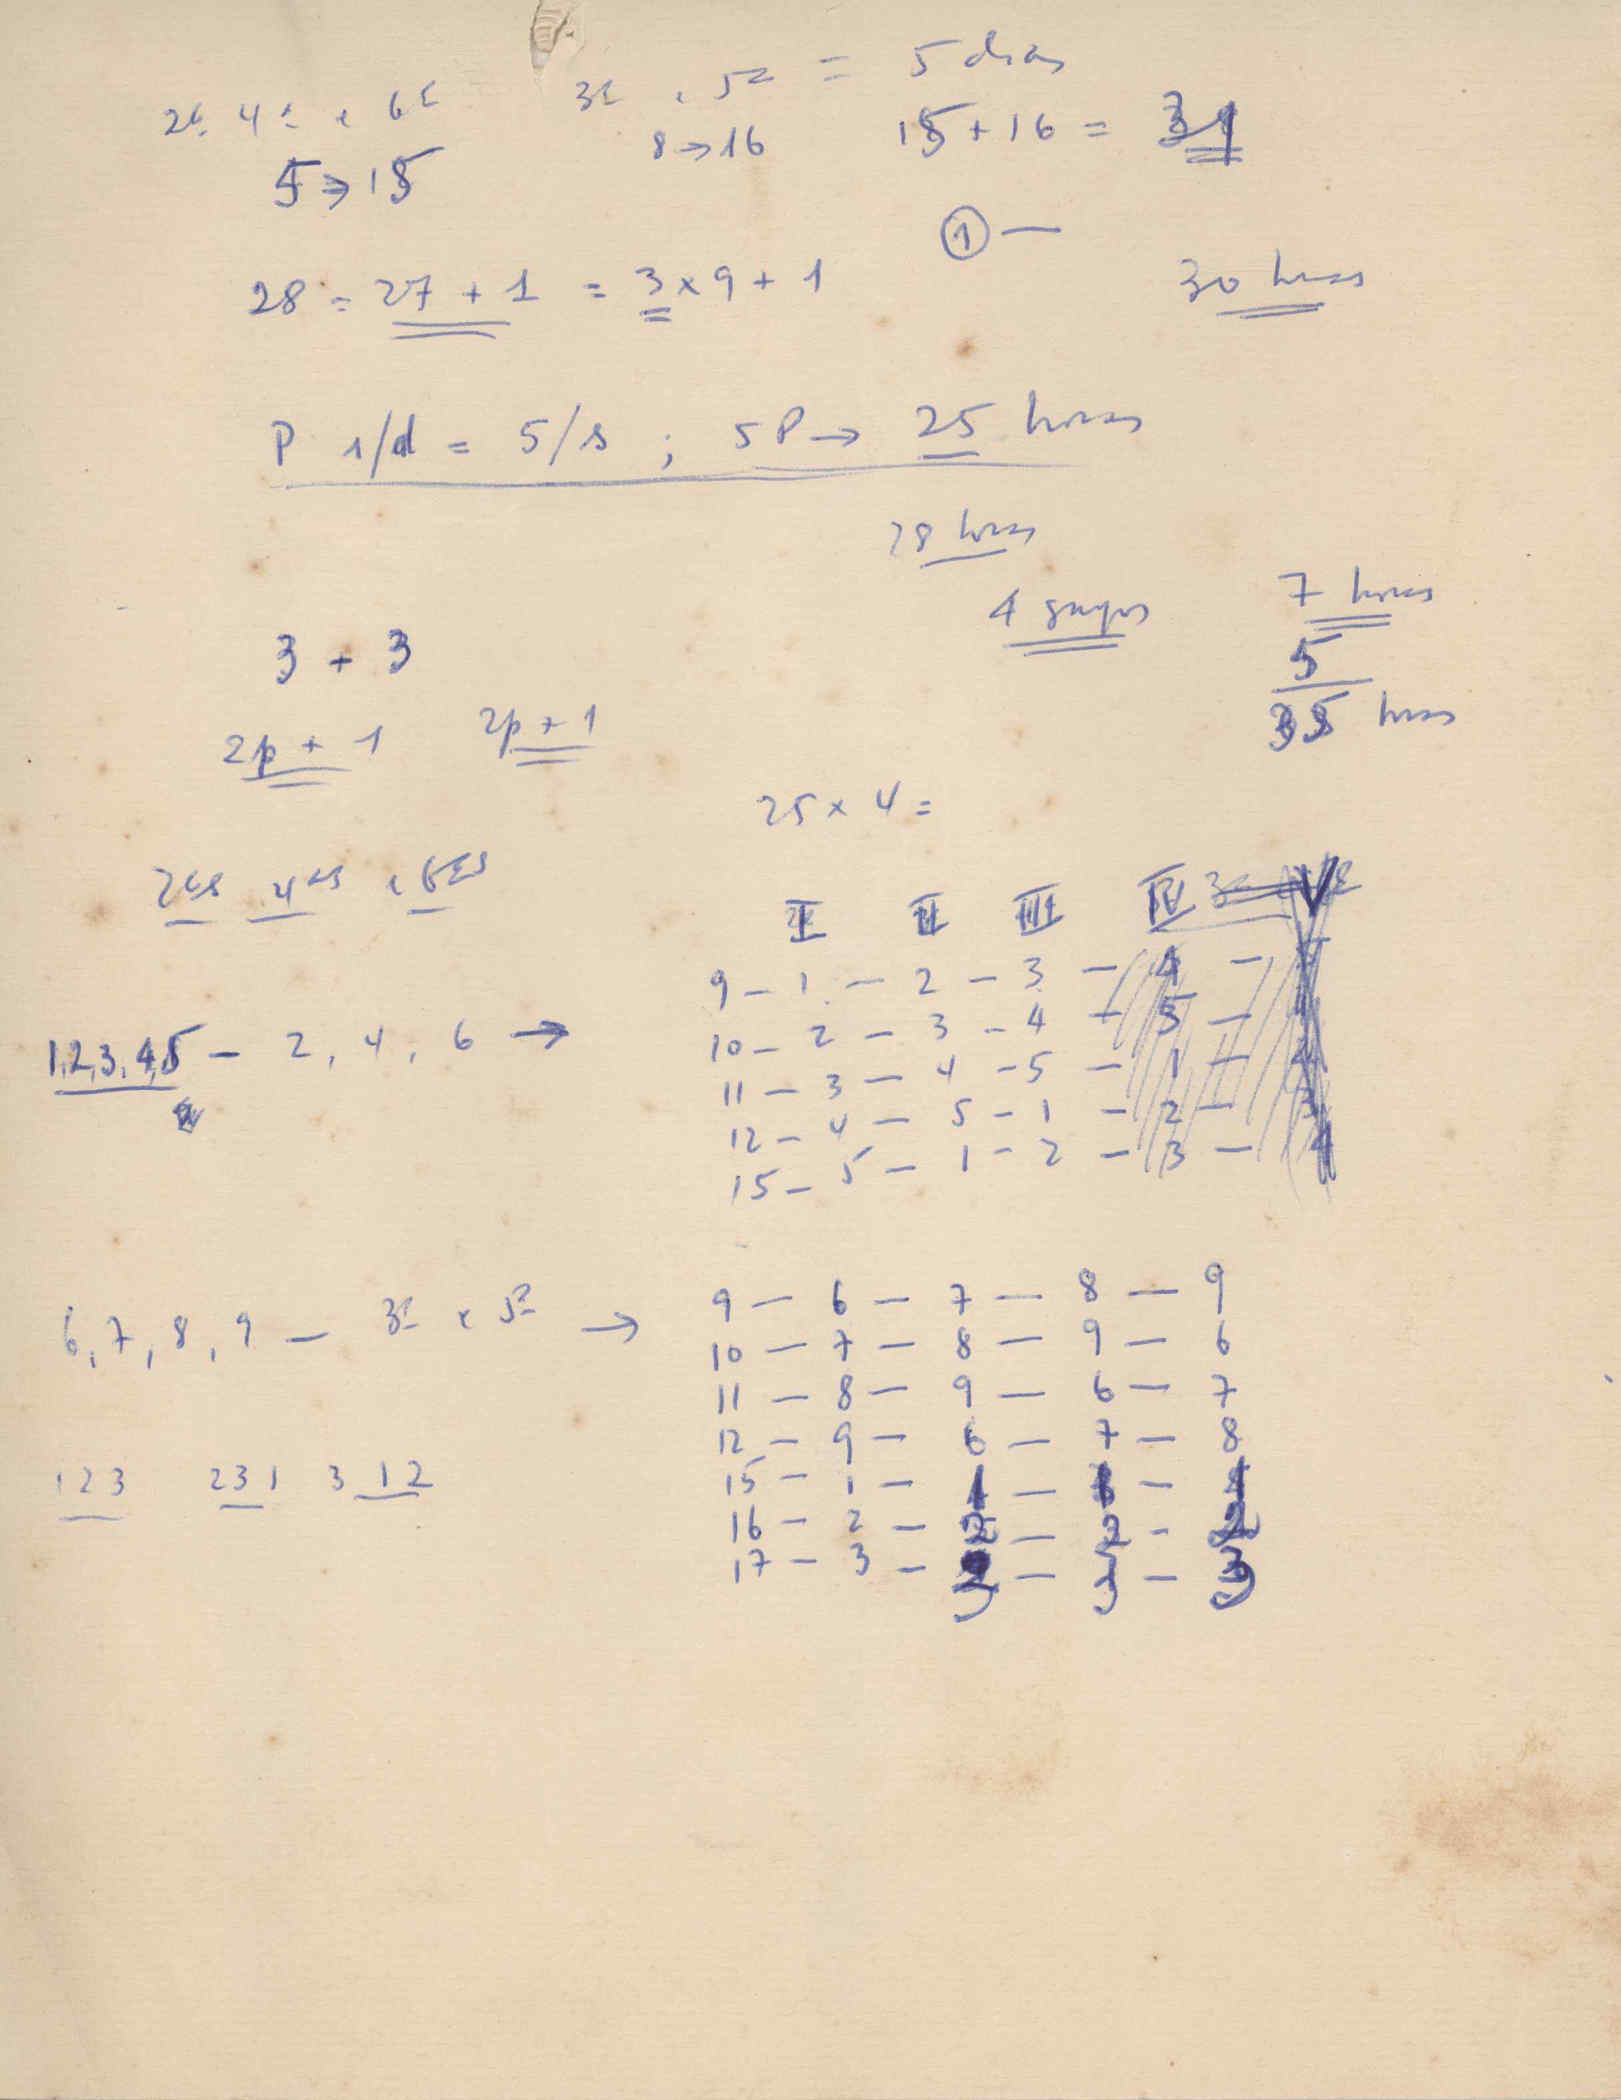 2ª, 4ª e 6ª 3ª e 5ª = 5 dias
5 → 15 8 → 16 15 + 16 = 31
① —
28 = 27 + 1 = 3 x 9 + 1 30 horas
P 1/d = 5/s ; 5P → 25 horas
28 horas
4 grupos 7 horas
3 + 3 5
2p + 1 2p + 1 35 horas
25 x 4 =
2ªs 4ªs e 6ªs
I II III IV
9 – 1 – 2 – 3 – 4 –
10 – 2 – 3 – 4 – 5 –
1,2,3,4,5 – 2, 4, 6 →
11 – 3 – 4 – 5 – 1 –
12 – 4 – 5 – 1 – 2 – 3
15 – 5 – 1 – 2 – 3 – 4
6, 7, 8, 9 – 3ª e 5ª →
9 – 6 – 7 – 8 – 9
10 – 7 – 8 – 9 – 6
11 – 8 – 9 – 6 – 7
12 – 9 – 6 – 7 – 8
123 231 312
15 – 1 – – –
16 – 2 – – –
17 – 3 – – –